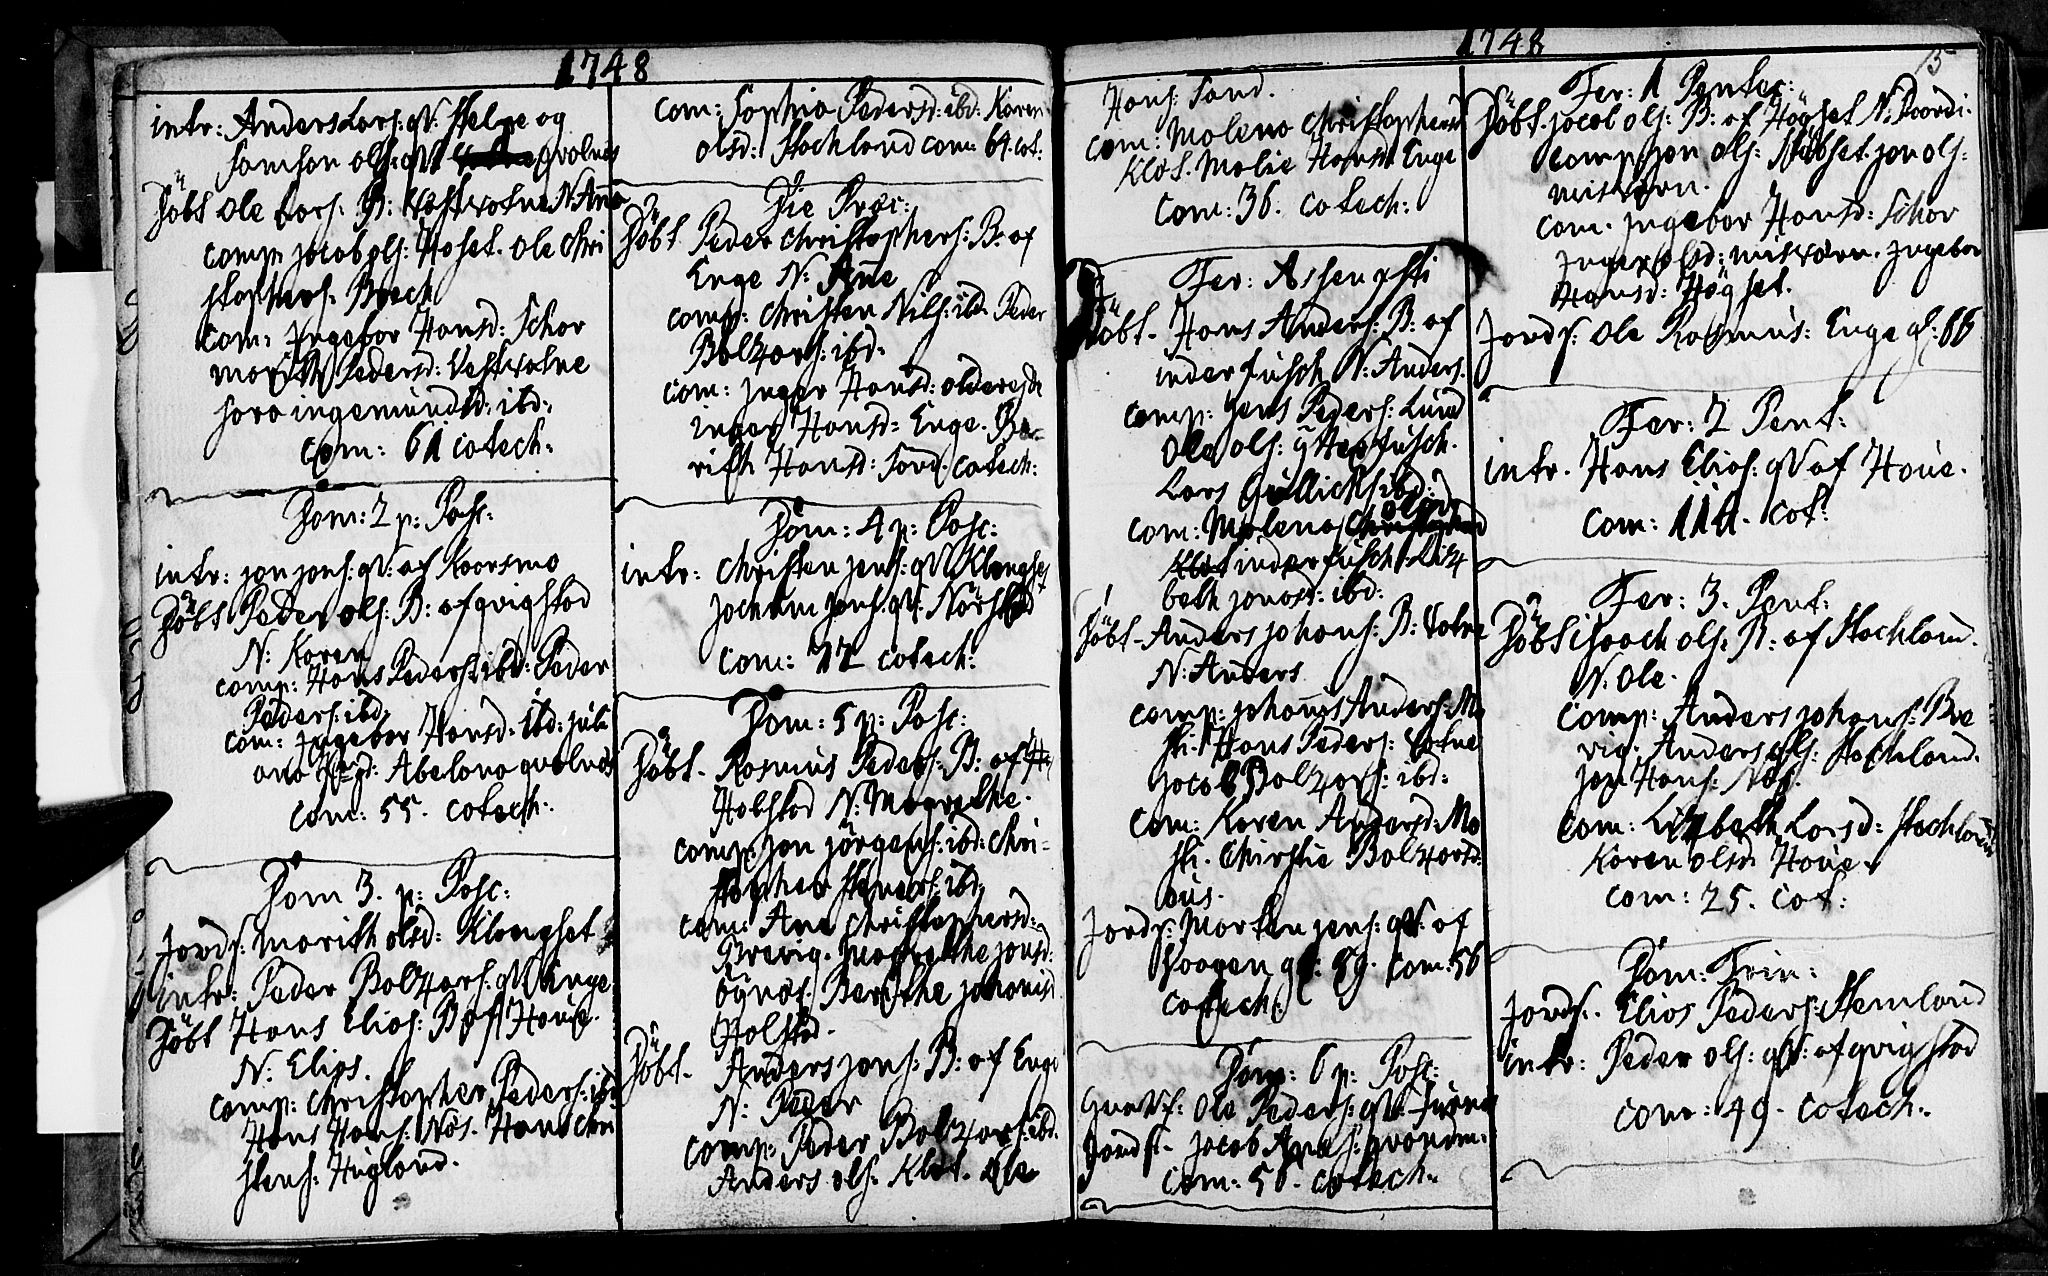 1748
intr: Anders Lars: qv: Helge og
Samson ols: qv: qvalnes
Döbt Ole Lars: B: Vestvatne N. Ane
comp: jacob ols: Höset. Ole Chri
stophers: Brech
com: Jngebor Hansd: Schar
Marith Pedersd: Vestvatne
Sara ingemundsd: ibd:
com: 61 catech:
Dom: 2 p: Pasc:
intr: jon jons: qv: af Koorsmo
Döbt Peder ols: B: af qvigstad
N: Karen
comp: Hans Peders: ibd: Peder
Peders: ibd:
com: Jngebor Hansd: ibd: juli
ana Abelona qvalnes
com: 55. catech:
Dom 3. p: Pasc:
Jordf: Marith olsd: Klongset
intr: Peder Balzars: qv: Enge
Döbt Hans Elias: B: af Houe.
N: Elias.
comp: Christopher Peders: ibd
Hans Hans: Nös. Hans Chri
stens: Huglond.
com: Sophia Pedersd: ibd: Karen
olsd: Stochland com: 64. cat:
Die Præc:
Döbt Peder Christophers: B: af
Enge N: Ane
comp: Christen Nils: ibd: Peder
Balzars: ibd:
com: Jnger Hansd: olderejde
inger Hansd: Enge. Be-
rith Hansd: Sand. catech:
Dom: 4 p: Pasc:
intr: Christen jens: qv: Klongset
jochum jons: qv: Nörstad
com: 72 catech:
Dom: 5 p: Pasc:
Döbt. Rasmus Peders: B: af
Halstad N: Magrethe.
comp: jon jörgens: ibd: Chri-
stopher Steners: ibd:
com: Ane Christophersd:
Brevig. Magrethe jonsd:
Öynæs. Berethe johanisd
Halstad.
Döbt. Anders jons: B: af Enge
N: Peder
comp: Peder Balzars: ibd.
Anders ols: Klæt. Ole
1748
Hans: Sand.
com: Malena Christophersd
Klæt. Malie Hansd: Enge
com: 36. catech:
Fer: Assensisti
Döbt. Hans Anders: B: af
inderfusch N: Anders.
comp: Jens Peders: Lund
Ole ols: ytterfusch.
Lars Gullichs: ibd:
com: Malena olsd
inderfusch Liz
beth jonasd: ibd:
Döbt. Anders johans: B: Vatne
N: Anders
comp: johanis Anders: Mo
sti. Hans Peders: Vatne
Jacob Balzars: ibd:
com: Karen Andersd: Mo
sti. Chirstie Balzarsd:
ous.
Jordf: Morten jens: qv: af
Hoogen gl: 59. com: 56
catech:
Dom: 6 p: Pasc:
Ole Peders: qv:
Jordf. jacob
com: 50. catech:
15
Fer: 1 Pentec:
Döbt. jacob ols: B: af Högset N: Baardi.
comp: jon ols: Stübset. jon ols:
misvörn.
com. Jngebor Hansd: Schar
Jnger olsd: misvörn. Jngebor
Hansd: Högset.
Jordf: Ole Rasmus: Enge gl: 66
Fer: 2 Pent:
intr. Hans Elias: qv af Houe.
com: 111. cat:
Fer: 3. Pent:
Döbt isaach ols: B: af Stochland.
N: Ole.
comp: Anders johans: Bre
vig. Anders ols: Stochland.
Jon Hans: Nös.
com: Lizbeth Larsd: Stochland
Karen olsd: Houe.
com: 25. cat:
Dom: Trin:
Jordf. Elias Peders: Stemland
intr: Peder ols: qv: af qvigstad
com: 49. catech: